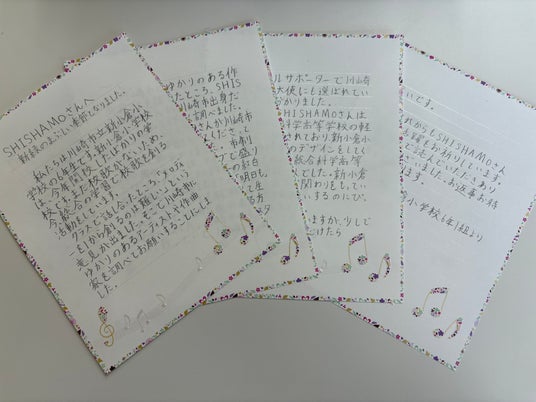 SHISHAMOさんへ
新緑のまぶしい季節になりました。
私たちは川崎市立新小倉小
学校の6年生です。新小倉小学校
は、今年開校したばかりの学
校です。まだ校歌がないため、
今総合の学習で校歌を作る
活動をしています。
クラスで話し合ったところ、「メロディ
ーを1から創るのは難しい」という
意見が出ました。そこで川崎市に
ゆかりのあるアーティストや作曲
家を調べてお願いすることにしま
した。
ゆかりのある作
たところ、SHIS
川崎市出身だ
調べました。
さんが川崎市
くださって
市制
で盛り
の紅白
「明日も
て生
る方
ルサポーターで川崎
大使にも選ばれてい
かりました。
SHISHAMOさんは
科学高等学校の軽
れており、新小倉小
のデザインをしてく
総合科学高等
でした。新小倉
関わりをもってい
いするのにぴ
ますが、少しで
だけたら
いです。
れからもSHISHAMOさん
活躍をお祈りしていま
で読んでいただきあり
いました。お返事お待
います。
小学校6年1組より